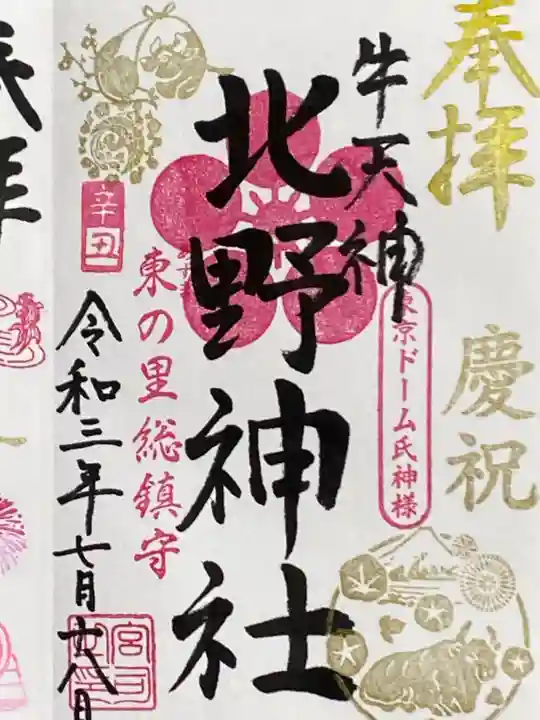 奉拝
慶祝
牛天神
東京ドーム氏神様
北野神社
東の里総鎮守
辛丑
令和三年七月廿八日
拝